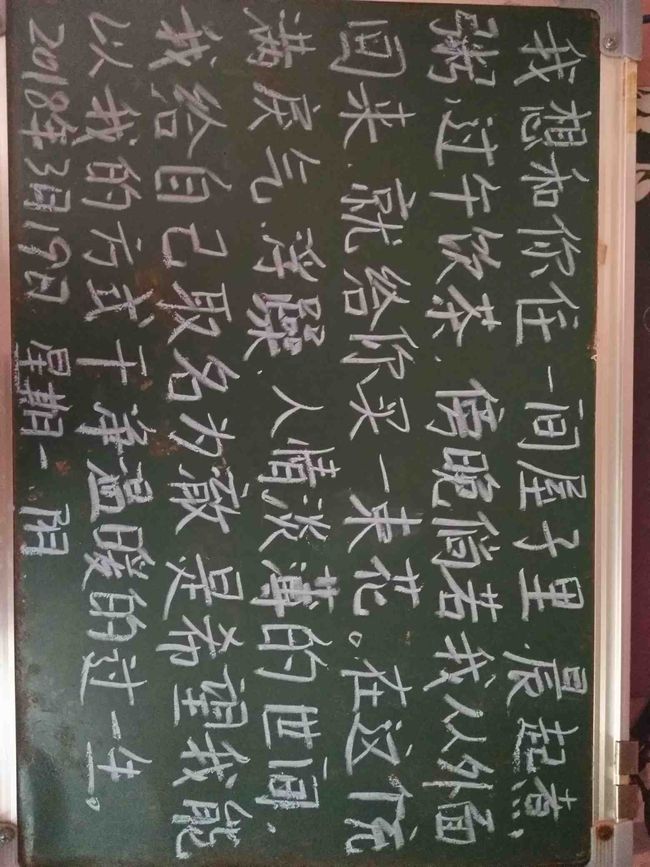 我想和你住一间屋子里,晨起煮,
粥,过午饮茶.傍晚倘若我从外面
回来.就给你采一束花。在这个充
满戾气.浮躁.人情淡薄的世间.
我给自己取名为敢是希望我能
以我的方式干净温暖的过一生。
2018年3月19日 星期一.阴